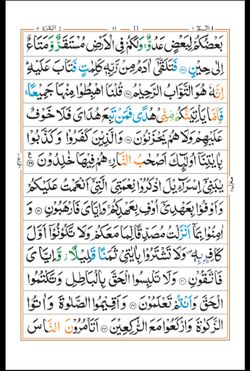 بَعْضُكُمْ لِبَعْضٍ عَدُوٌّ وَلَكُمْ فِي الْاَرْضِ مُسْتَقَرٌّ وَّمَتَاعٌ
اِلٰى حِيْنٍ فَتَلَقّٰۤى اٰدَمُ مِنْ رَّبِّهٖ كَلِمٰتٍ فَتَابَ عَلَيْهِ
اِنَّهٗ هُوَ التَّوَّابُ الرَّحِيْمُ قُلْنَا اهْبِطُوْا مِنْهَا جَمِيْعًا
فَاِمَّا يَاْتِيَنَّكُمْ مِّنِّيْ هُدًى فَمَنْ تَبِعَ هُدَايَ فَلَا خَوْفٌ
عَلَيْهِمْ وَلَا هُمْ يَحْزَنُوْنَ وَالَّذِيْنَ كَفَرُوْا وَكَذَّبُوْا
بِاٰيٰتِنَاۤ اُولٰٓئِكَ اَصْحٰبُ النَّارِ هُمْ فِيْهَا خٰلِدُوْنَ
يٰبَنِيْۤ اِسْرَآءِيْلَ اذْكُرُوْا نِعْمَتِيَ الَّتِيْۤ اَنْعَمْتُ عَلَيْكُمْ
وَاَوْفُوْا بِعَهْدِيْۤ اُوْفِ بِعَهْدِكُمْ وَاِيَّايَ فَارْهَبُوْنِ وَ
اٰمِنُوْا بِمَاۤ اَنْزَلْتُ مُصَدِّقًا لِّمَا مَعَكُمْ وَلَا تَكُوْنُوْۤا اَوَّلَ
كَافِرٍ بِهٖ وَلَا تَشْتَرُوْا بِاٰيٰتِيْ ثَمَنًا قَلِيْلًا وَّاِيَّايَ
فَاتَّقُوْنِ وَلَا تَلْبِسُوا الْحَقَّ بِالْبَاطِلِ وَتَكْتُمُوا
الْحَقَّ وَاَنْتُمْ تَعْلَمُوْنَ وَاَقِيْمُوا الصَّلٰوةَ وَاٰتُوا
الزَّكٰوةَ وَارْكَعُوْا مَعَ الرّٰكِعِيْنَ اَتَاْمُرُوْنَ النَّاسَ